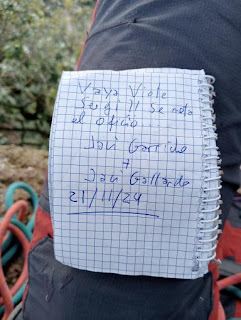 Vaya Viole
Sergi!! Se nota
el oficio
Javi Garrido
+
Dani Gallardo
21/11/24